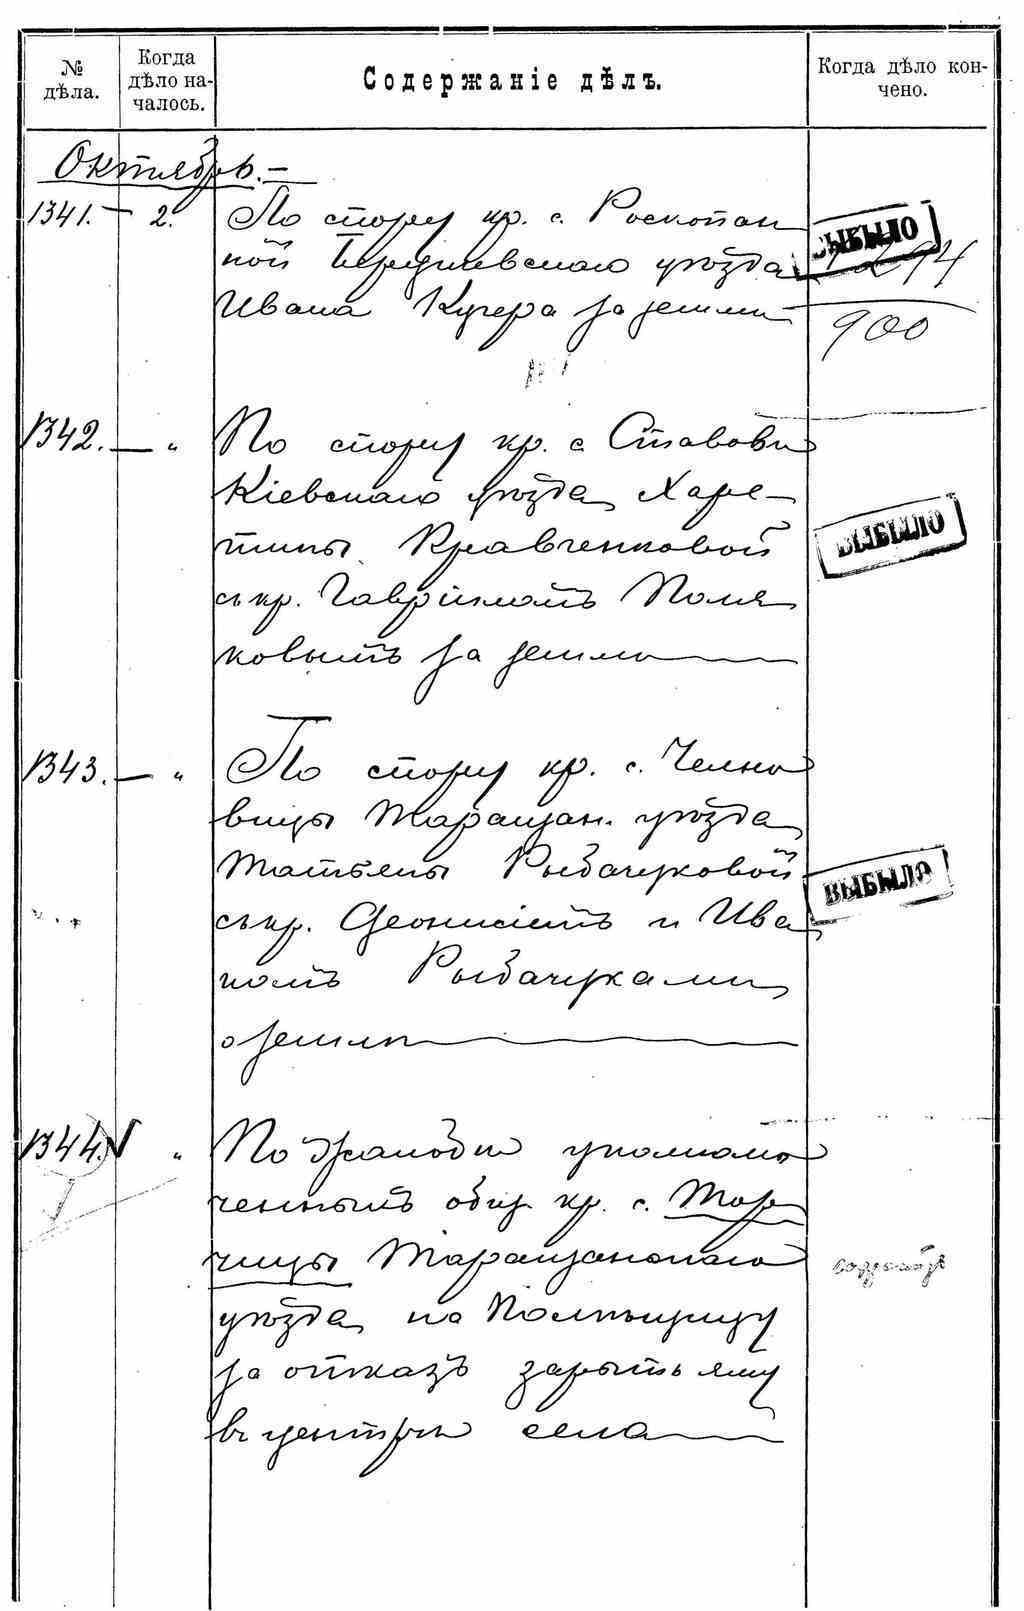 № дѣла.
Когда дѣло началось.
Содержаніе дѣлъ.
Когда дѣло кончено.
Октябрь.—
1341. — 2. По спору кр. с. Роскопан
ной Бердичевскаго уѣзда
Ивана Кучера за землю
ВЫБЫЛО
900
1342. — „ По спору кр. с Ставови
Кіевскаго уѣзда Харе-
тины Кравченковой
съ кр. Гавріиломъ Поля
ковымъ за землю
ВЫБЫЛО
1343. — „ По спору кр. с.
вицы Таращан. уѣзда
Татьяны Рыбачуковой
съ кр. Деонисіемъ и Ива
номъ Рыбачуками
о землѣ
ВЫБЫЛО
1344. „ По жалобѣ уполномо
ченнымъ общ. кр. с. Тор
чицы Таращанскаго
уѣзда на
за отказъ зарыть яму
въ центрѣ села